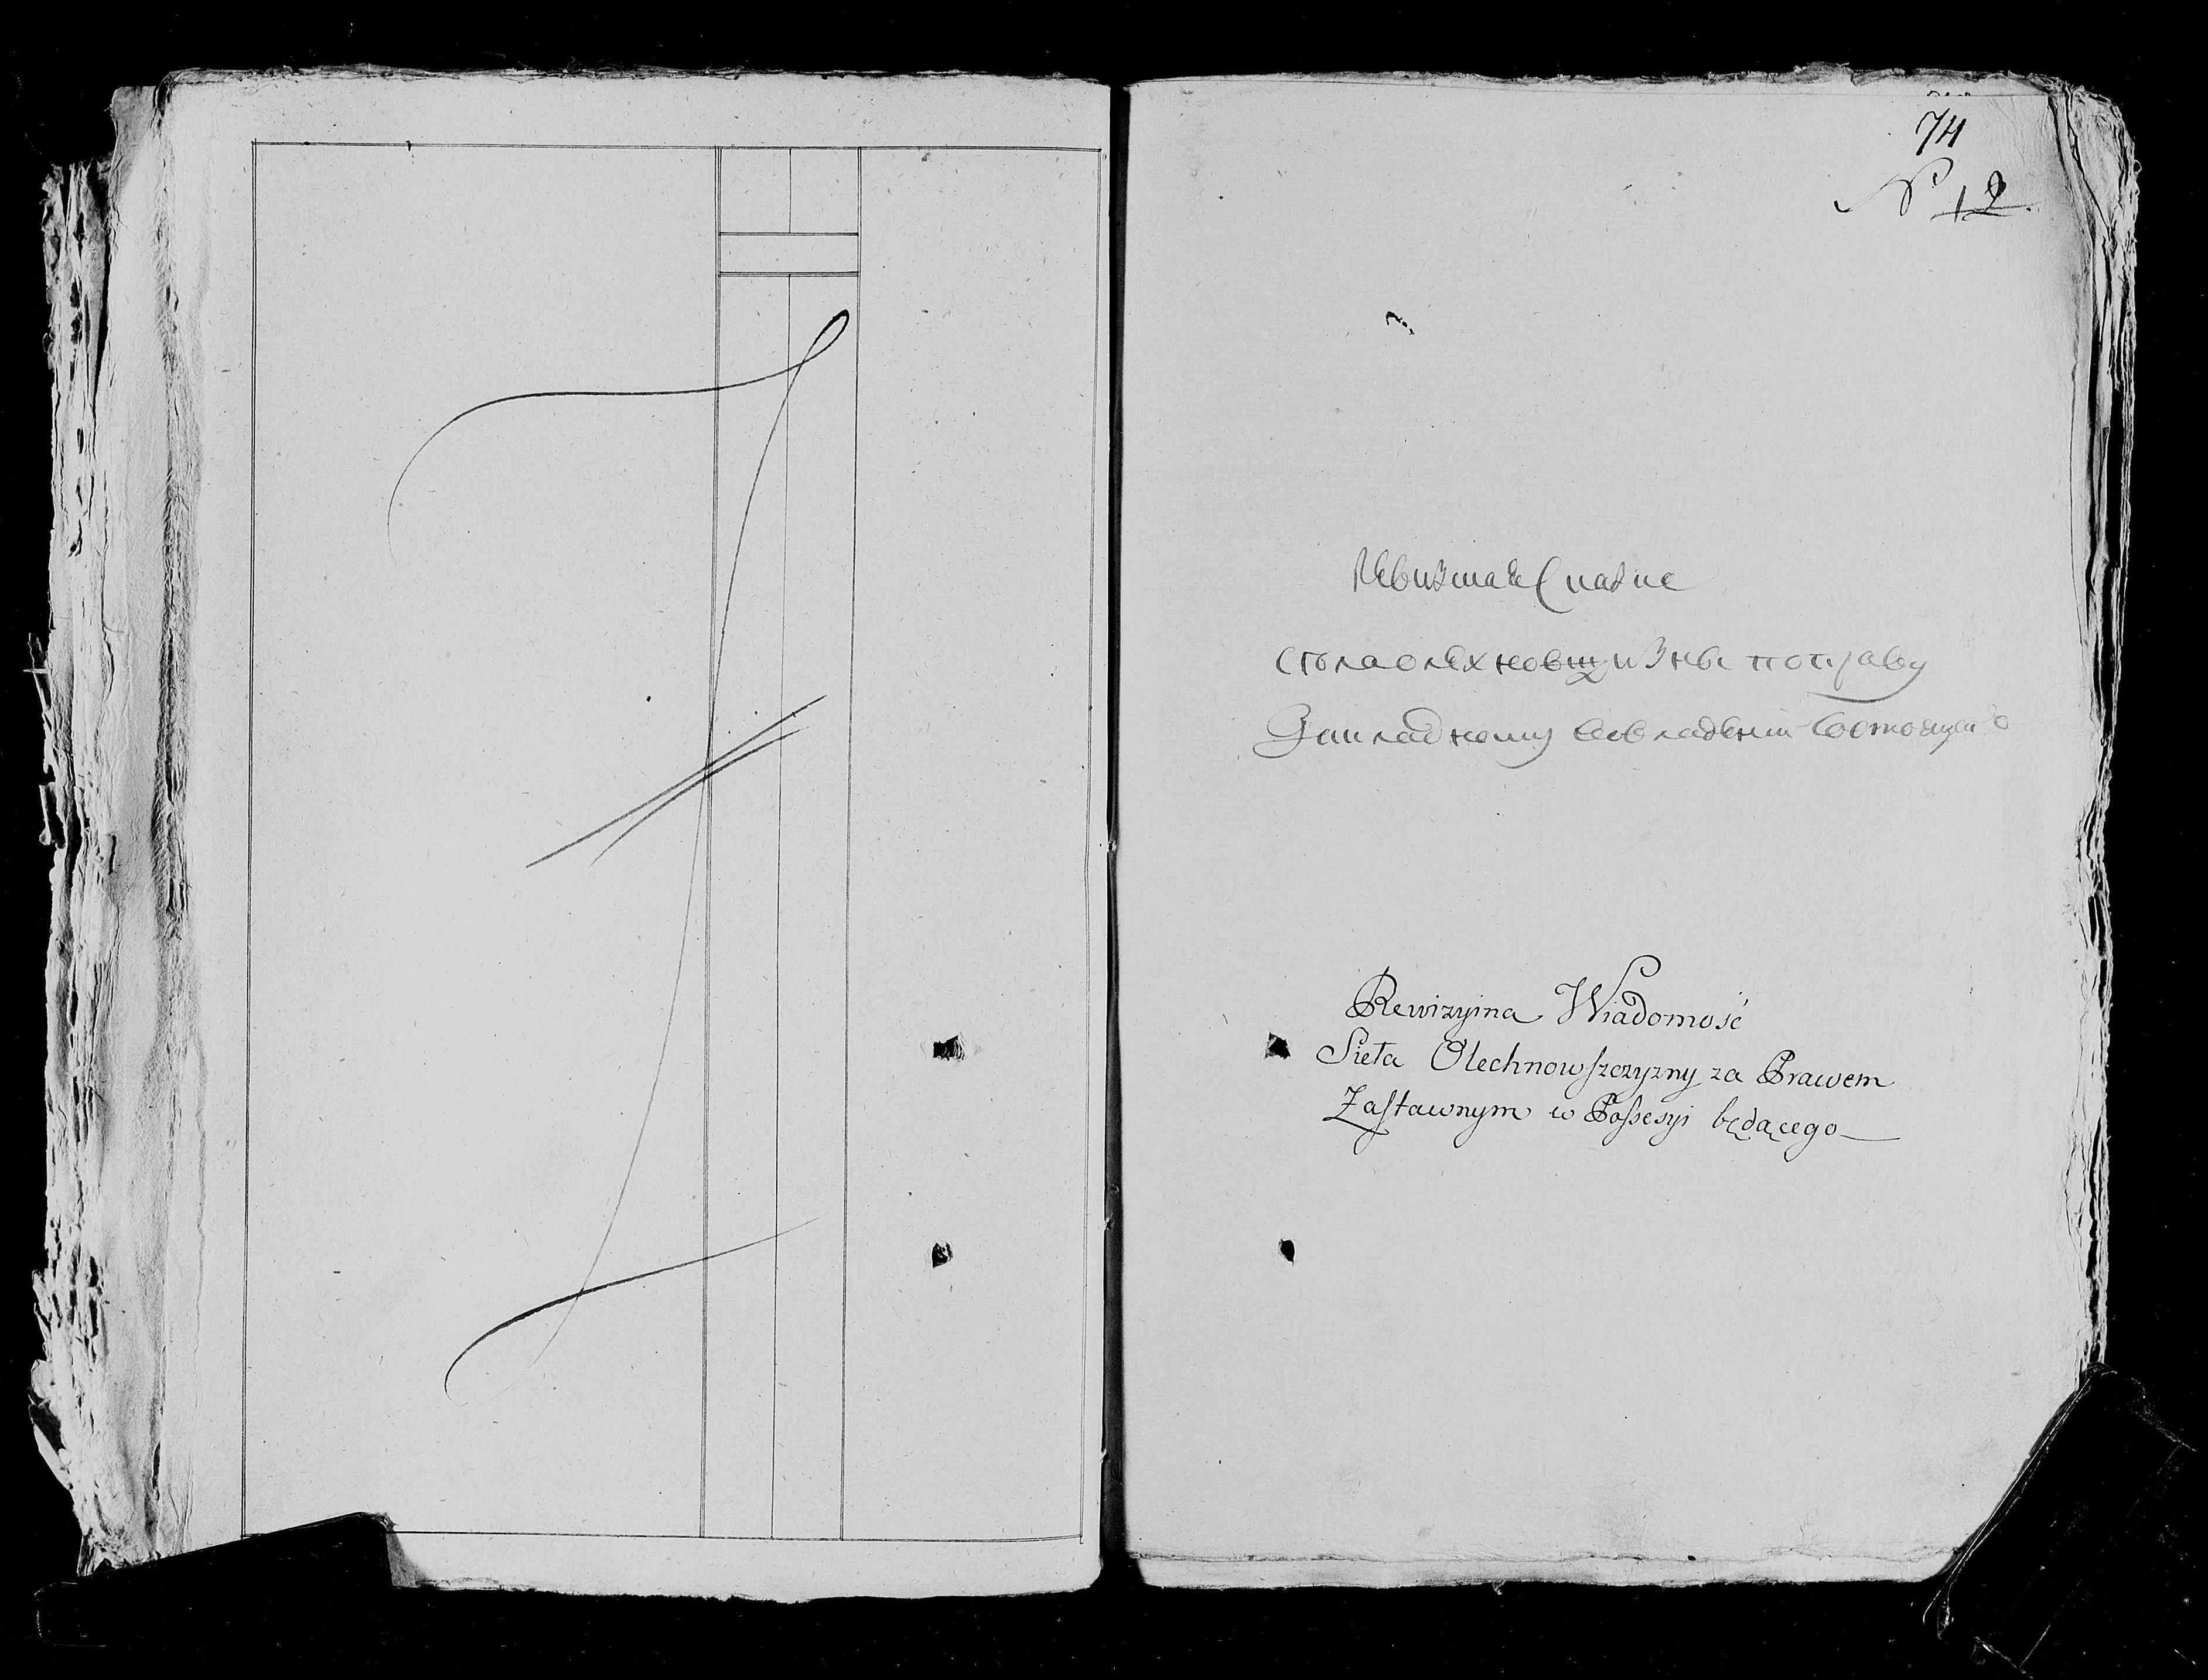 74
№ 12.
Ревизская Сказке
села олехновщизны по праву
Закладному во владении Состоящего
Rewizyina Wiadomość
Sieła Olechnowszczyzny za Prawem
Zastawnym w Possesyi będącego